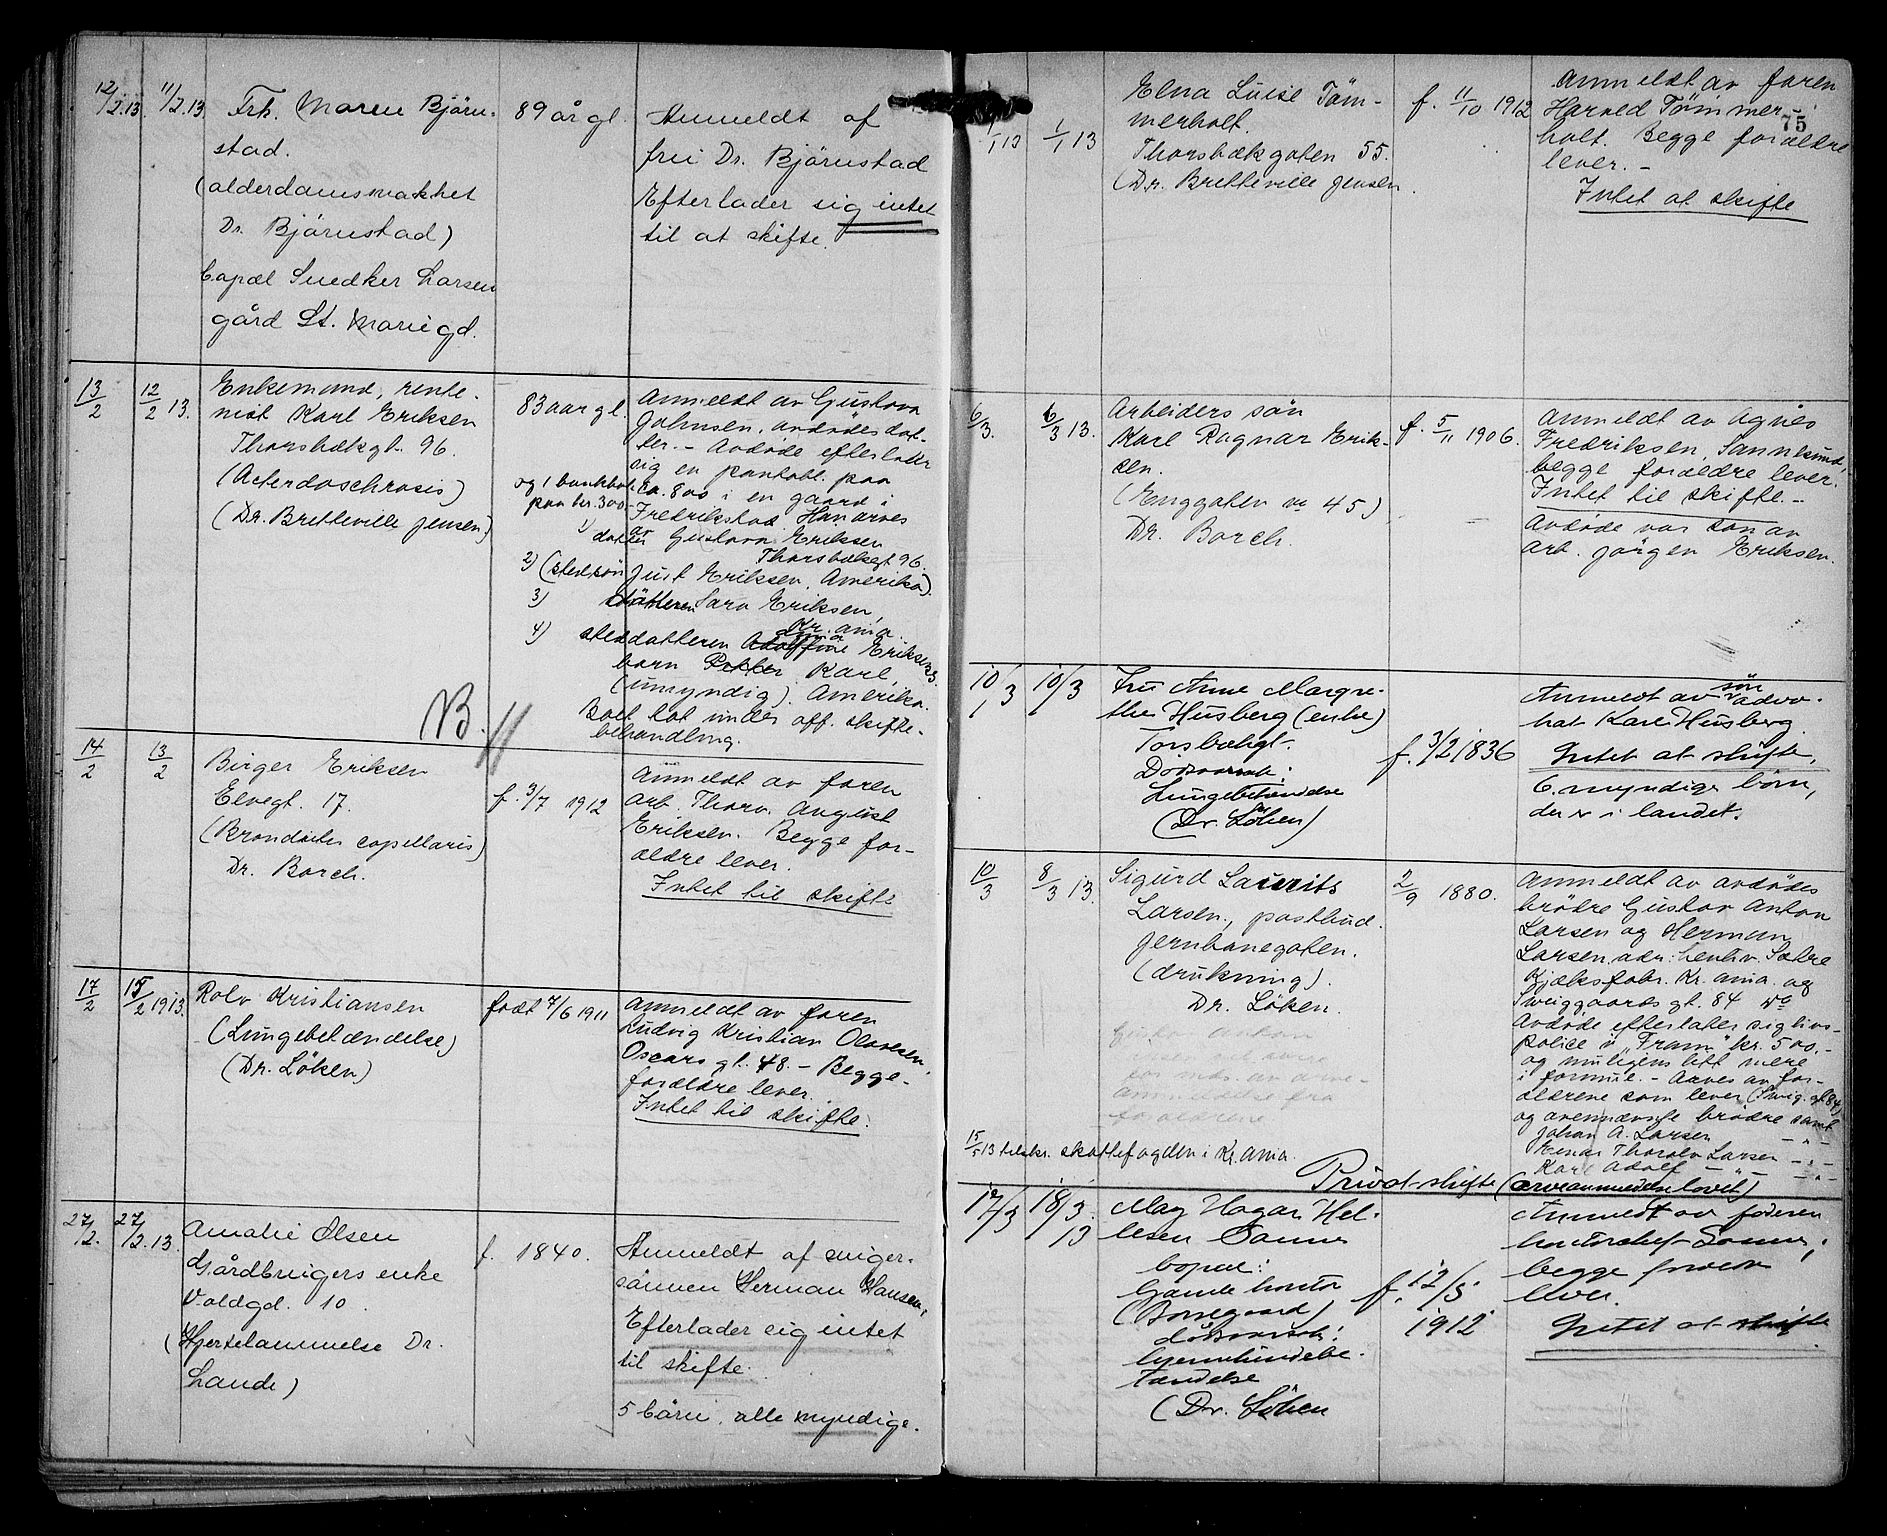 12/2.13. 11/2.13 Frk. Maren Björn-
stad.
(alderdomsvakhet
Dr. Björnstad)
bopæl Snedker Larsen
gård St. Mariegd.
89 år gl.
Anmeldt af
frü Dr. Björnstad
Efterlader sig intet
til at skifte.
13/2 12/2 13. Enkemand, rente-
nist Karl Eriksen
Thorsbækgt. 96.
(Dr. Bretteville Jensen)
83 aar gl.
og 1 bankbok
paa kr. 300.-
Anmeldt av Gustava
Johnsen, avdödes dat-
ter. - Avdöde efterlater
sig en pantobl. paa
ca. 800 i en gaard i
Fredrikstad. Han arves
av
1) datter Gustava Eriksen
Thorsbækgt 96.
2) (stedsön Just Eriksen, Amerika).
3) datteren Sara Eriksen,
Kr.ania.
4) steddatteren Adolfine Eriksens
barn Petter Karl,
(umyndig). Amerika.
Boet tat under off. skifte-
behandling.
B.
14/2 13/2 Birger Eriksen
Elvegt. 17.
Dr. Borch.
f. 3/7 1912
Anmeldt av faren
arb. Thorv. August
Eriksen. Begge for-
ældre lever.
Intet til skifte
17/2 15/2 1913. Rolv Kristiansen
(Lungebetændelse)
(Dr. Löken)
födt 7/6 1911
Anmeldt av faren
Ludvig Kristian Olavesen,
Oscars gt. 48. - Begge-
forældre lever.
Intet til skifte.
27/2. 27/2.13. Amalie Olsen
Gårdbrugers enke
Voldgd. 10.
(Hjertelammelse Dr.
Lande)
f. 1840.
Anmeldt af sviger-
sönnen Herman Hansen,
Efterlader sig intet
til skifte.
5 börn, alle myndige.
75
1/1 13 1/1 13 Elna Luise Töm-
merholt.
Thorsbækgaten 55.
(Dr. Bretteville Jensen.
f. 11/10 1912
Anmeldt av faren
Harald Tömmer-
holt. Begge forældre
lever. -
Intet at skifte
6/3. 6/3 13. Arbeiders sön
Karl Ragnar Erik-
sen.
(Enggaten no 45)
Dr. Borch.
f. 5/11 1906.
Anmeldt av Agnes
Fredriksen, Sannesund,
begge forældre lever.
Intet til skifte. -
Avdöde var sön av
arb. Jörgen Eriksen.
10/3 10/3 Fru Anne Margre-
the Husberg (enke)
Torsbækgt.
Dödsaarsak:
Lungebetændelse
(Dr. Löken)
f. 3/2 1836
Anmeldt av sön advo-
kat Karl Husberg
Intet at skifte,
6 myndige börn,
der er i landet.
10/3 8/3 13. Sigurd Laurits
Larsen, postbud.
Jernbanegaten.
(drukning).
Dr. Löken.
2/9 1880.
Anmeldt av avdödes
brödre Gustav Anton
Larsen og Herman
Larsen, adr: henhv. Sætre
Kjæksfabr. Kr.ania. og
Sweiggaards gt. 84 do
Avdöde efterlater sig livs-
police i "Fram" kr. 500.-
og muligens litt mere
i formue. - Arves av for-
ældrene som lever (Sweig. gt 84)
og ovennævnte brödre samt
Johan A. Larsen -"-
Einar Thoralv Larsen -"-
Karl Adolf -"- -"-
15/5 13 tilskr. skattefogden i Kr.ania.
Privat skifte (arveanmeldelse lovet)
17/3 18/3. 13 May Hagar Hel-
lesen Sannes
bopæl:
Gamle kontor
(Borregaard)
dödsaarsak:
hjernehindebe-
tændelse
(Dr. Löken
f. 12/5
1912
Anmeldt av faderen
kontorchef Sannes,
begge foreldre
lever.
Intet at skifte